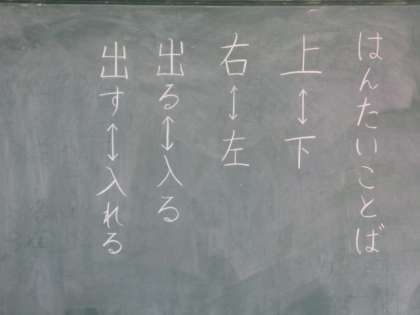 はんたいことば
上↔下
右↔左
出る↔入る
出す↔入れる